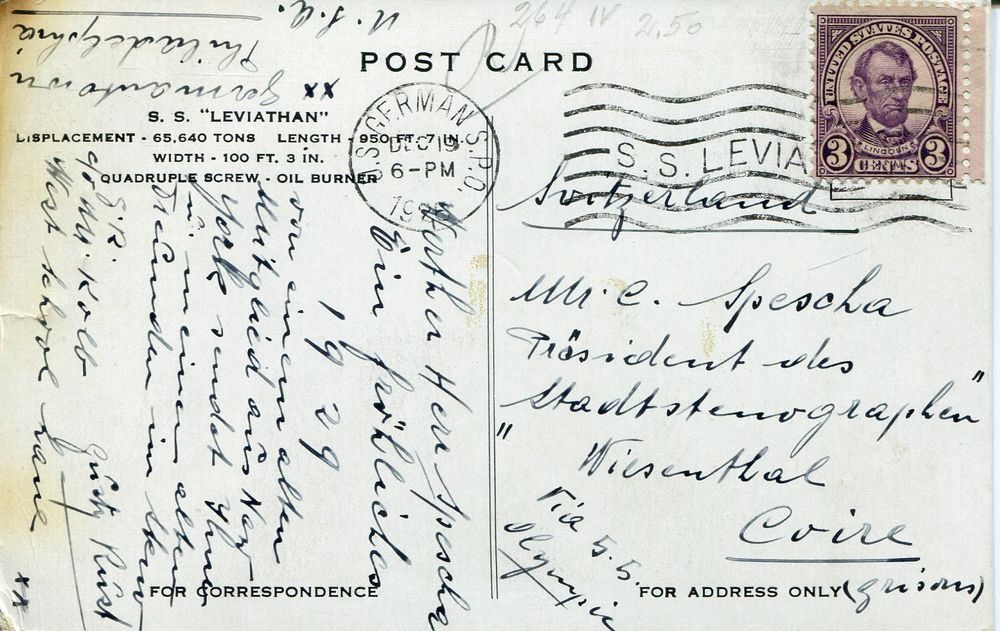 264 IV 2,50
POST CARD
S. S. "LEVIATHAN"
DISPLACEMENT - 65,640 TONS LENGTH - 950 FT. 7 IN.
WIDTH - 100 FT. 3 IN.
QUADRUPLE SCREW - OIL BURNER
U.S. GERMAN S.P.O.
DEC 19
6-PM
S. S. LEVIA
UNITED STATES POSTAGE
LINCOLN
3 CENTS 3
Switzerland
Mr. C. Spescha
Präsident des
"Stadtstenographen"
Wiesenthal
Coire
(Grisons)
Via S.S.
Olympic
Werther Herr Spescha
Ein fröhliches
1929
von einem alten
Mitglied aus New
York sendet Ihnen
u. meinen alten
Freunden im Stew
Gusty Rüst
c/o Mr. Kolb
West School Lane
xx
xx Germantown
Philadelphia
U.S.A.
FOR CORRESPONDENCE
FOR ADDRESS ONLY